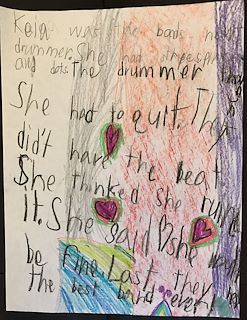 Kela was the bads new
drummer She had stripes
and dots The drummer
She had to quit. They
didn't have the beat
She thinked she
it. She said she
be fine Last they
the best band ever!